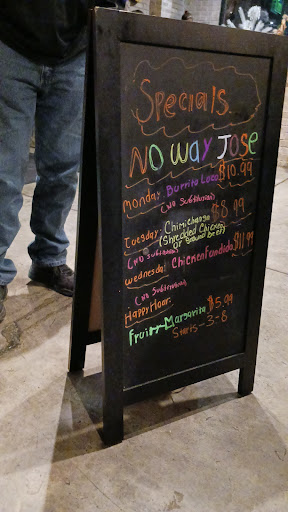 Specials
NO WAY JOSE
Monday: Burrito Loco $10.99
(NO Substitutions)
Tuesday: Chimichanga $8.99
(Shredded Chicken
or ground beef)
(NO Substitutions)
Wednesday: Chicken Fundido $11.99
(NO Substitutions)
Happy Hour:
Fruity Margarita $5.99
Starts-3-6